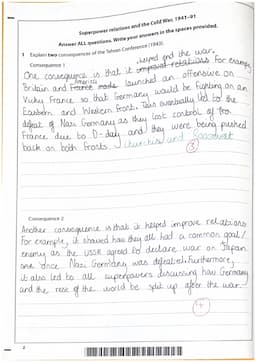 Superpower relations and the Cold War, 1941–91
Answer ALL questions. Write your answers in the spaces provided.
1 Explain two consequences of the Tehran Conference (1943).
Consequence 1
helped end the war.
One consequence is that it improved relations For example,
America
Britain and France made launched an offensive on
Vichy France so that Germany would be fighting on an
Eastern and Western front. This eventually led to the
defeat of Nazi Germany as they lost control of
France due to D-day and they were being pushed
back on both fronts. Churchill and
3
Consequence 2
Another consequence is that it helped improve relations
For example, it showed how they all had a common goal/
enemy as the USSR agreed to declare war on Japan
once Nazi Germany was defeated. Furthermore,
it also led to all superpowers discussing how Germany
and the rest of the world be split up after the war.
4
2